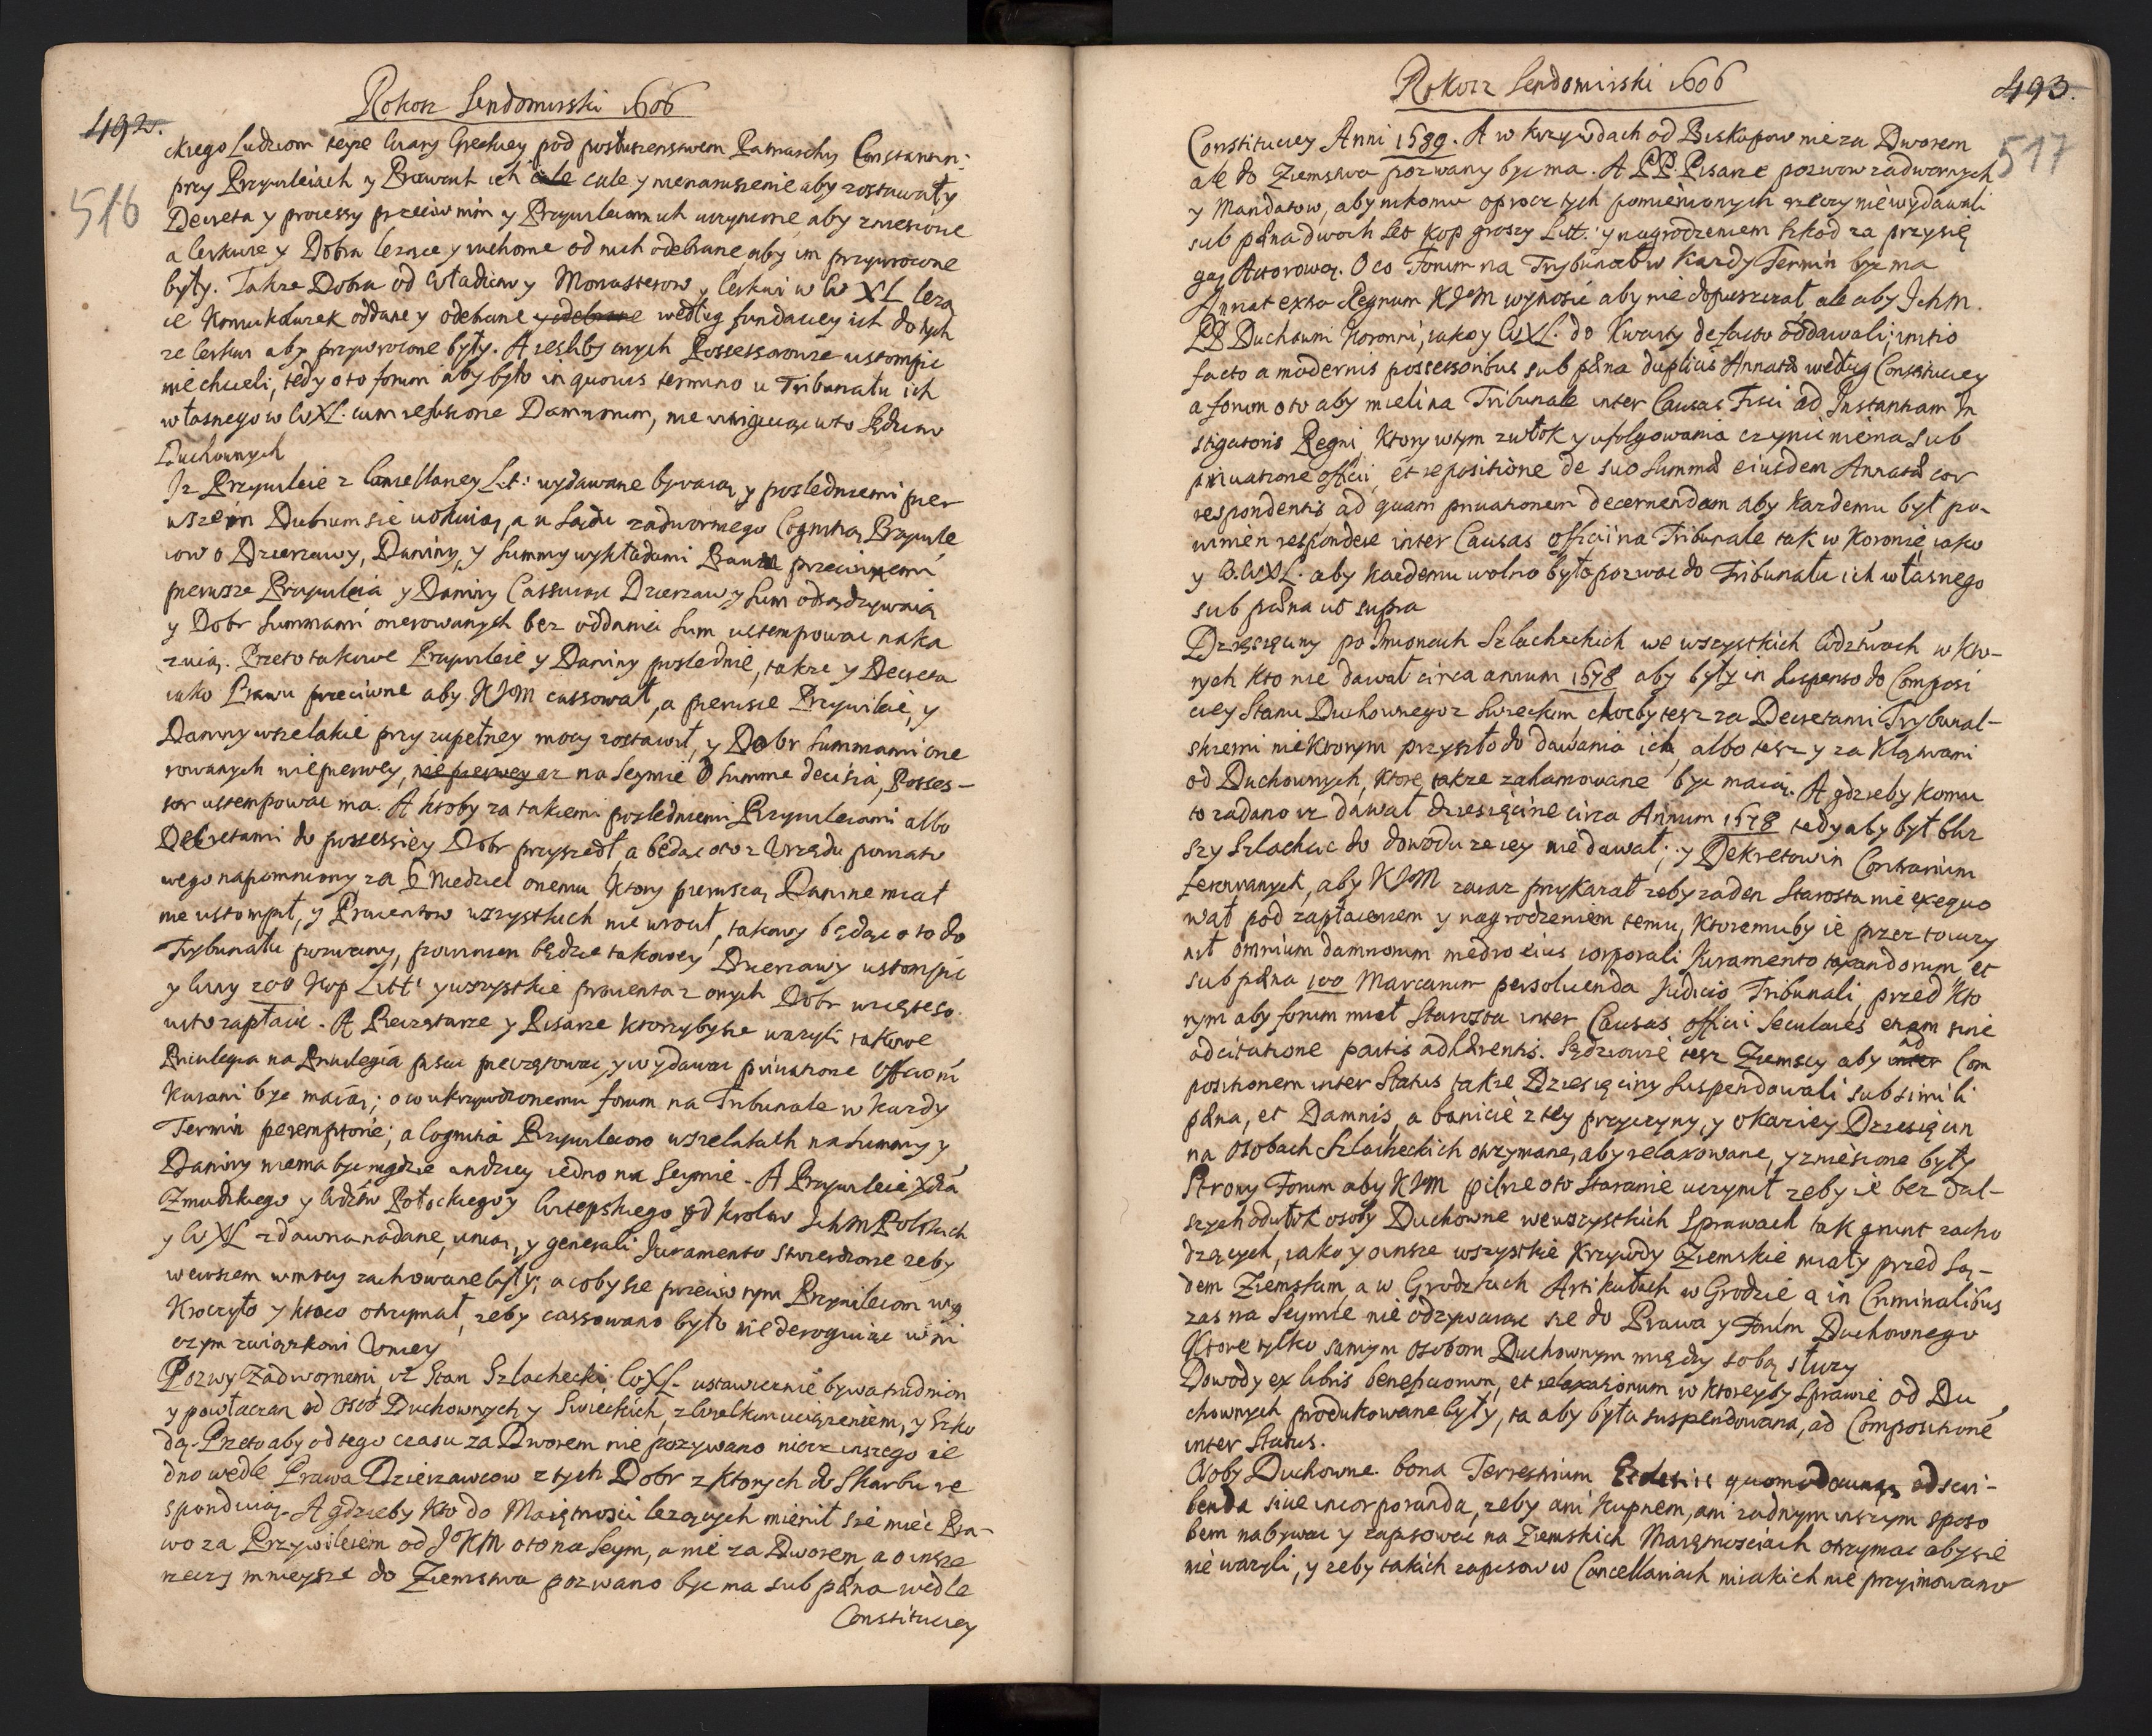 Rokosz Sendomirski 1606
492.
516
ckiego Ludziom teyże Wiary Greckiey pod posłuszenstwem Patriarchy Constantin:
przy Przywileiach y Prawach ich cale cale y nienaruszenie aby zostawały
Decreta y processy przeciw nim y Przywileiom ich uczynione, aby zniesione
a Cerkwie y Dobra leżące y ruchome od nich odebrane, aby im przywrocone
były. Także Dobra od Władicow y Monasterow y Cerkwi w W XL leżą
ce komukolwiek oddane y odebrane y odebrane według fundaciey ich do tych
że Cerkwi aby przywrocone były. A ieśliby onych Possessorowie ustompic
niechcieli, tedy oto forum aby było in quovis termino u Tribunału ich
własnego w WXL. cum refusione Damnorum, nie wciągaiąc w to Sędziow
Duchownych
Iż Przywileie z Cancellaryey Lit: wydawane bywaią, y poslednieemi pier
wszem Dubrum sie uokuią, a u Sądu zadwornego Cognitią Przywile
iow o Dzierzawy, Daniny, y Summy wykładami Prawa przeciwnemi
pierwsze Przywileia y Daniny Cassuiąc Dzierzaw y Sum odsądzywaią
y Dobr Summami onerowanych bez oddania Sum ustempowac naka
zuią. Przeto takowe Przywileie y Daniny poslednie, także y Decreta
iako Prawu przeciwne aby KJM cassował, a pierwsze Przywileie, y
Daniny wszelakie przy zupełney mocy zostawił, y Dobr Summami one
rowanych niepierwey, niepierwey az na Seymie o Summe decisia, Posses-
sor ustempowac ma. A ktoby za takiemi posledniemi Przywileiami albo
Dekretami do possessiey Dobr przyszedł a będąc oto z Urzędu powiato
wego napomniony za 6 Niedziel onemu ktory pierwszą Danine miał
nie ustompił, y Prowentow wszystkich nie wrocił, takowy będąc o to do
Trybunału pozwany, powinien będzie takowey Dzierzawy ustompic
y winy 200 Kop Litt: y wszystkie prowenta z onych Dobr wziętego
usto zapłacic. A Pieczętarze y Pisarze ktorzyby sie ważyli takowe
Privilegia na Privilegia pisac pieczętowac, y wydawac privatione Officiorum
karani byc maią; o co ukrzywdzonemu forum na Tribunale w kazdy
Termin peremptorie; a Cognitia Przywileiow wszelakich na Summy y
Daniny niema byc nigdzie indziey iedno na Seymie. A Przywileie Xtwa
Zmudzkiego y Wdztw Połockiego y Witepskiego od krolow Ich M Polskich
y WXL zdawna nadane, unią, y generali Juramento stwierdzone zeby
wewszem w mocy zachowane były; a coby sie przeciw tym Przywileiom wy
kroczyło y ktoco otrzymał, zeby cassowano było nie deroguiąc w ni
czym związkowi Uniey
Pozwy Zadwornemi, iż Stan Szlachecki WXL ustawicznie bywa trudnion
y powłaczan od osob Duchownych y Swieckich, z Wielkim uciążeniem, y Szko
dą. Przeto aby od tego czasu za Dworem nie pozywano nioco inszego ie
dno wedle Prawa Dzierzawcow z tych Dobr z ktorych do Skarbu re
sponduią. A gdzieby kto do Maiętnosci leżących mienił sie miec Pra-
wo za Przywileiem od JKM oto na Seym, a nie za Dworem, a o insze
rzeczy mnieysze do Ziemstwa pozwano byc ma sub pæna wedle
Constituciey
Rokosz Sendomirski 1606
493.
517
Constituciey Anni 1589. A w krzywdach od Biskupow nie za Dworem
ale do Ziemstwa pozwany byc ma. A PP. Pisarze pozwow zadwornych
y Mandatow, aby nikomu oprocz tych pomienionych rzeczy nie wydawali
sub pæna dwoch Set kop groszy Litt: y nagrodzeniem szkod za przysię
gą Actorową. O co Forum na Trybunałow kazdy Termin byc ma
Annat extra Regnum KJM wynosic aby nie dopuszczał, ale aby Ich M.
PP Duchowni Koronni, iako y WXL. do Kwarty de facto oddawali, initio
facto a modernis possessoribus sub pæna duplicis Annatæ według Constituciey
a forum oto aby mieli na Tribunale inter Causas Fisci ad Instantiam In
stigatoris Regni, ktory w tym zwłok y ufolgowania czynic niema sub
privatione officii, et repositione de suo Summæ eiusdem Annatæ cor
respondentis ad quam privationem decernendam aby kazdemu był po-
winien respondere inter Causas officii na Tribunale tak w Koronie, iako
y w WXL. aby kazdemu wolno było pozwac do Tribunału ich własnego
sub pæna ut supra
Dziesięciny po Imionach Szlacheckich we wszystkich Wdztwach w kto-
rych kto nie dawał circa annum 1578 aby były in Suspenso do Composi
ciey Stanu Duchownego z Swieckim choćby tesz za Decretami Trybunal-
skiemi niektorym przyszło do dawania ich, albo tesz y za Klątwami
od Duchownych, ktore także zahamowane byc maią. A gdzieby komu
to zadano iz dawał dziesięcine circa Annum 1578 tedy aby był bliz
szy Szlachcic do dowodu ze iey nie dawał; y Dekretow in Contrarium
ferowanych, aby KJM zaraz przykazał zeby zaden Starosta nie exequo
wał pod zapłaceniem y nagrodzeniem temu, ktoremuby ie przez to uczy
nił omnium damnorum medio eius corporali Juramento taxandorum, et
sub pæna 100 Marcarum persoluenda Judicio Tribunali, przed kto
rym aby forum miał Starosta inter Causas officii Seculares etiam sine
adcitatione partis adhærentis. Sędziowie tesz Ziemscy aby inter ad Com
positionem inter Status takie Dziesięciny suspendowali sub simili
pæna, et Damnis, a banicie z tey przyczyny, y okaziey Dziesięcin
na osobach Szlacheckich otrzymane, aby relaxowane, y zniesione były
Strony Forum aby KJM pilne oto staranie uczynił zeby ie bez dal-
szych odwłok osoby Duchowne we wszystkich Sprawach tak grunt zacho
dzących, iako y o insze wszystkie krzywdy Ziemskie miały przed Są-
dem Ziemskim, a w Grodzkich Artikułach w Grodzie a in Criminalibus
zas na Seymie nie odzywaiąc sie do Prawa y Forum Duchownego
Ktore tylko samym osobom Duchownym między sobą słuzy
Dowody ex libris beneficiorum, et relaxationum w ktoreyby sprawie od Du
chownych produkowane były, ta aby była suspendowana, ad Compositione
inter Status.
Osoby Duchowne bona Terrestrium Ecclesiis quomodocunq; adscri-
benda siue incorporanda, zeby ani kupnem, ani zadnym inszym sposo
bem nabywac y zapisowac na Ziemskich Maiętnosciach otrzymac aby sie
nie wazyli, y zeby takich zapisow w Cancellariach niiakich nie przyimowano